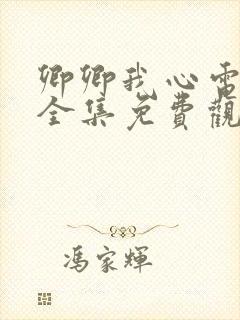 卿卿我心電
全集免費觀
馮家輝